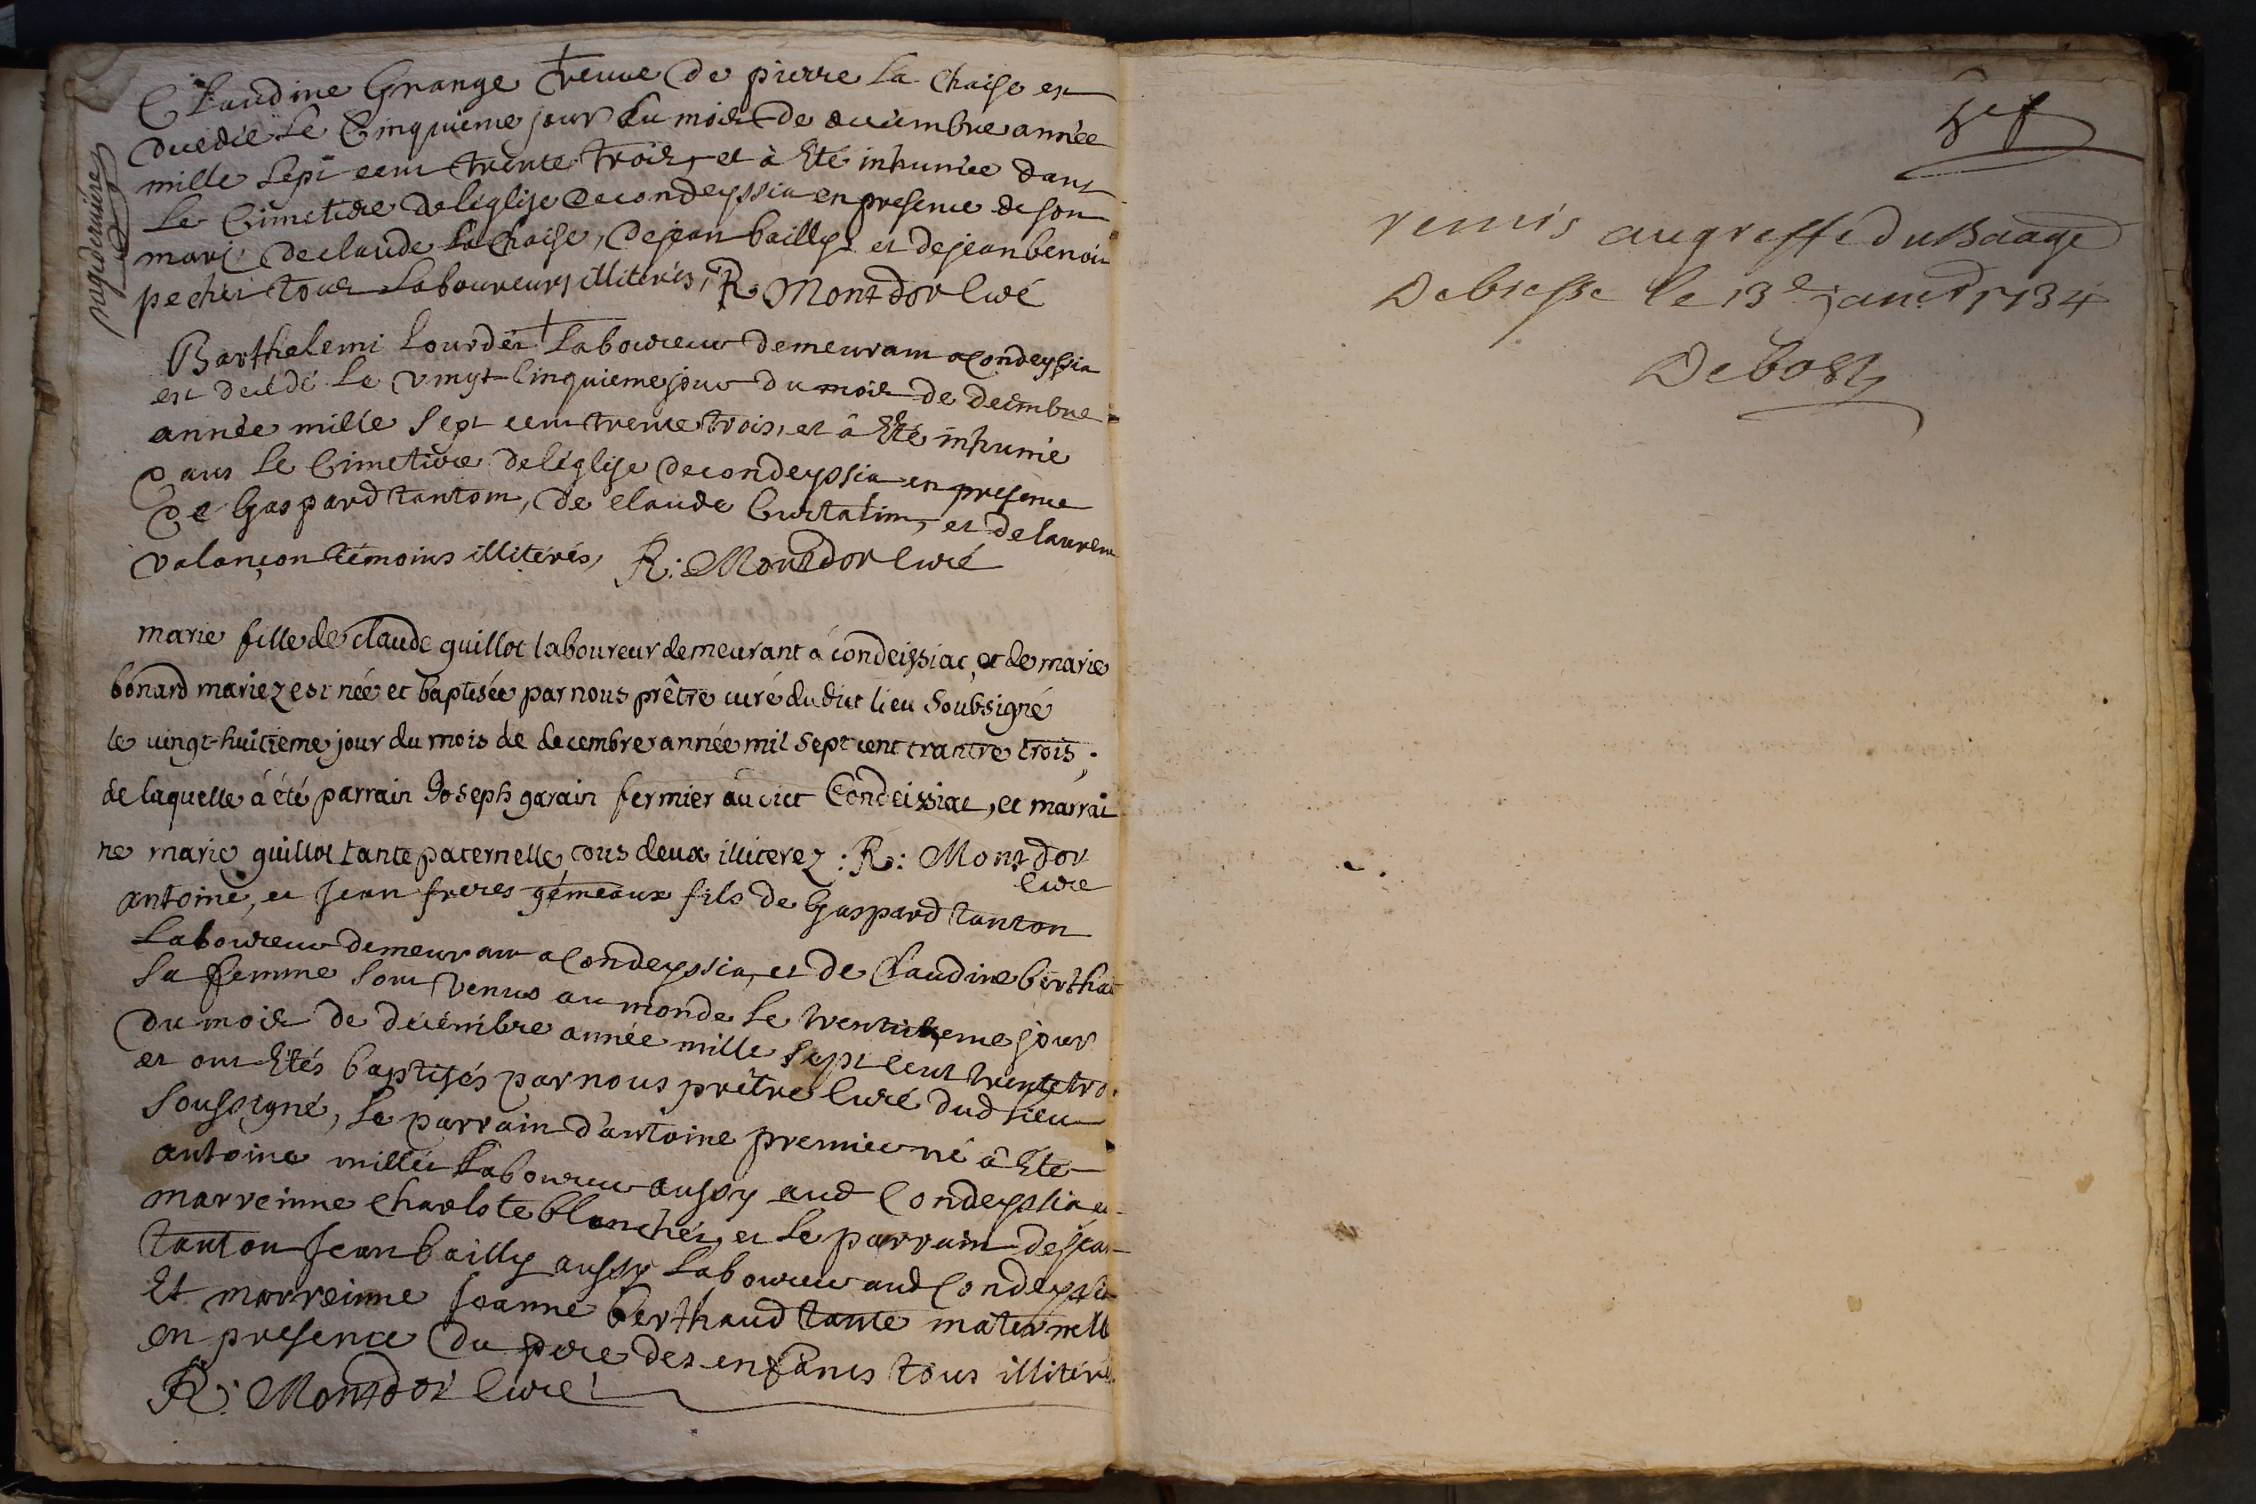 page derniére
Claudine Grange veuve de pierre la Chaise est
decédée le Cinquiéme jour du mois de decembre année
mille sept cent trente trois, et à Eté inhumée dans
le Cimetiere de l'église de condeyssia en presence de son
mari de claude la Chaise, de jean bailly et de jean benoit
pecher tous laboureurs illiterés, R. Montdor Curé
Barthelemi Lourdet laboureur demeurant a Condeyssia
est decédé le vingt-Cinquieme jour du mois de decembre
année mille Sept cent trente trois, et â Eté inhumé
Dans le Cimetiere de l'église de condeyssia en presence
De Gaspard tanton, de claude Curtalin, et de laurent
valançon témoins illiterés, R: Montdor Curé
marie fille de claude guillot laboureur demeurant a condeissiac, et de marie
bonard mariez est née et baptisée par nous prêtre curé dudict lieu Soubsigné
le vingt-huitieme jour du mois de decembre année mil sept cent trantre trois;
de laquelle à été parrain Joseph garain fermier au dict Condeissiac, et marrai
ne marie guillot tante paternelle, tous deux illiterez: R: Montdor
Curé
antoine, et Jean freres gémeaux fils de Gaspard tanton
Laboureur demeurant a Condeyssia, et de Claudine berthat
Sa femme Sont venus au monde le trentieme jour
Du mois de décémbre année mille Sept Cent trente tro
et ont Etés baptisés par nous prêtre Curé dud lieu
Soussigné, le parrain d'antoine premier né â Eté
antoine millet Laboureur aussy aud Condeyssia, et
marreinne charlote blanchet, et le parrain de jean
tanton Jean bailly aussy laboureur aud Condeyssia
Et marreinne Jeanne berthaud tante maternelle
en presence Du pere des enfans tous illiterés
R: Montdor Curé
remis au greffe du Baage
De bresse le 13e janvr 1734
Debost